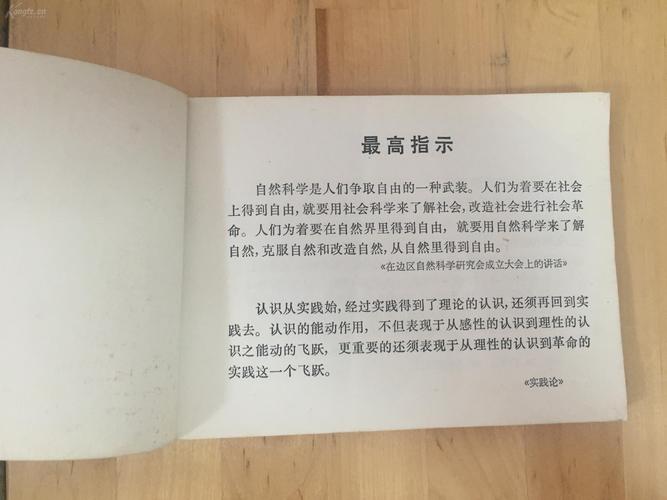 Kongfz.cn
最高指示
自然科学是人们争取自由的一种武装。人们为着要在社会
上得到自由,就要用社会科学来了解社会,改造社会进行社会革
命。人们为着要在自然界里得到自由,就要用自然科学来了解
自然,克服自然和改造自然,从自然里得到自由。
《在边区自然科学研究会成立大会上的讲话》
认识从实践始,经过实践得到了理论的认识,还须再回到实
践去。认识的能动作用,不但表现于从感性的认识到理性的认
识之能动的飞跃,更重要的还须表现于从理性的认识到革命的
实践这一个飞跃。
《实践论》